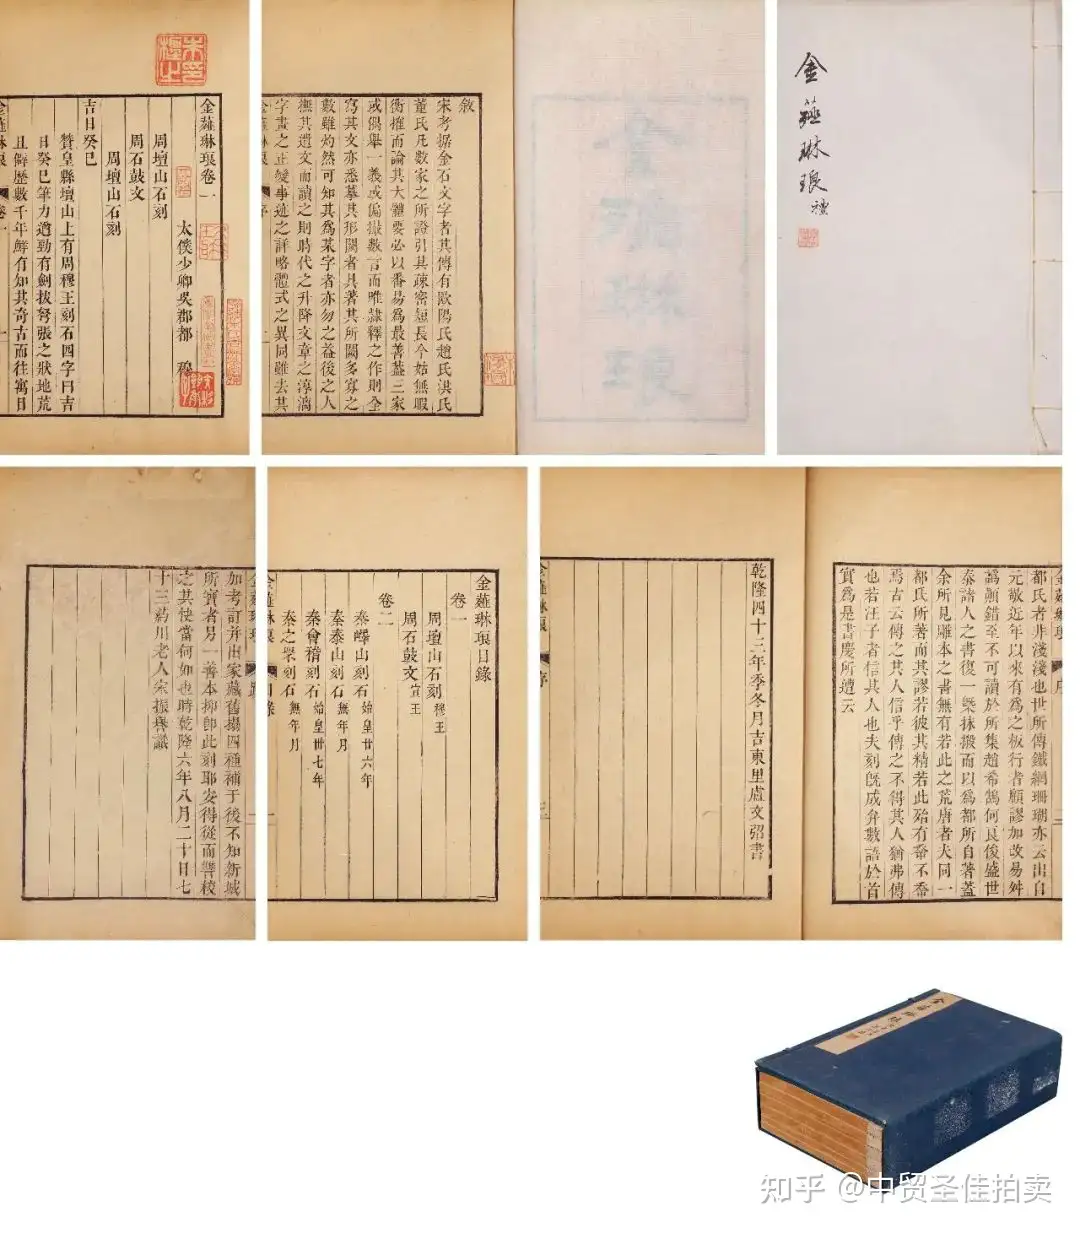 金薤琳琅卷一
太僕少卿吳郡都 穆
周壇山石刻
周石鼓文
周壇山石刻
吉日癸巳
贊皇縣壇山上有周穆王刻石四字曰吉
日癸巳筆力遒勁有劍拔弩張之狀地荒
且僻歷數千年鮮有知其奇古而往寓目
敘
宋考據金石文字者其傳有歐陽氏趙氏洪氏
董氏凡數家之所證引其疎密短長今姑無暇
衡搉而論其大體要必以番昜為最善蓋三家
或偶舉一義或偏撮數言而唯隸釋之作則全
寫其文亦悉摹其形闕者具著其所闕多寡之
數雖灼然可知其為某字者亦勿之益後之人
撫其遺文而讀之則時代之升降文章之淳漓
字畫之正變事迹之詳略體式之異同雖去其
金薤琳琅
金薤琳琅
如考訂并出家藏舊搨四種補于後不知新城
所寶者另一善本抑即此刻耶安得從而讐校
之其快當何如也時乾隆六年八月二十日七
十三葯川老人宋振譽識
金薤琳琅目錄
卷一
周壇山石刻穆王
周石鼓文宣王
卷二
秦嶧山刻石始皇廿六年
秦泰山刻石無年月
秦會稽刻石始皇卅七年
秦之罘刻石無年月
都氏者非淺淺也世所傳鐵網珊瑚亦云出自
元敬近年以來有為之板行者顧謬加改易舛
譌顛錯至不可讀於所集趙希鵠何良俊盛世
泰諸人之書復一槩抹摋而以為都所自著蓋
余所見雕本之書無有若此之荒唐者夫同一
都氏所著而其謬若彼其精若此殆有幸不幸
焉古云傳之其人信乎傳之不得其人猶弗傳
也若汪子者信其人也夫刻既成弁數語於首
實為是書慶所遭云
乾隆四十三年季冬月吉東里盧文弨書
知乎 @中贸圣佳拍卖